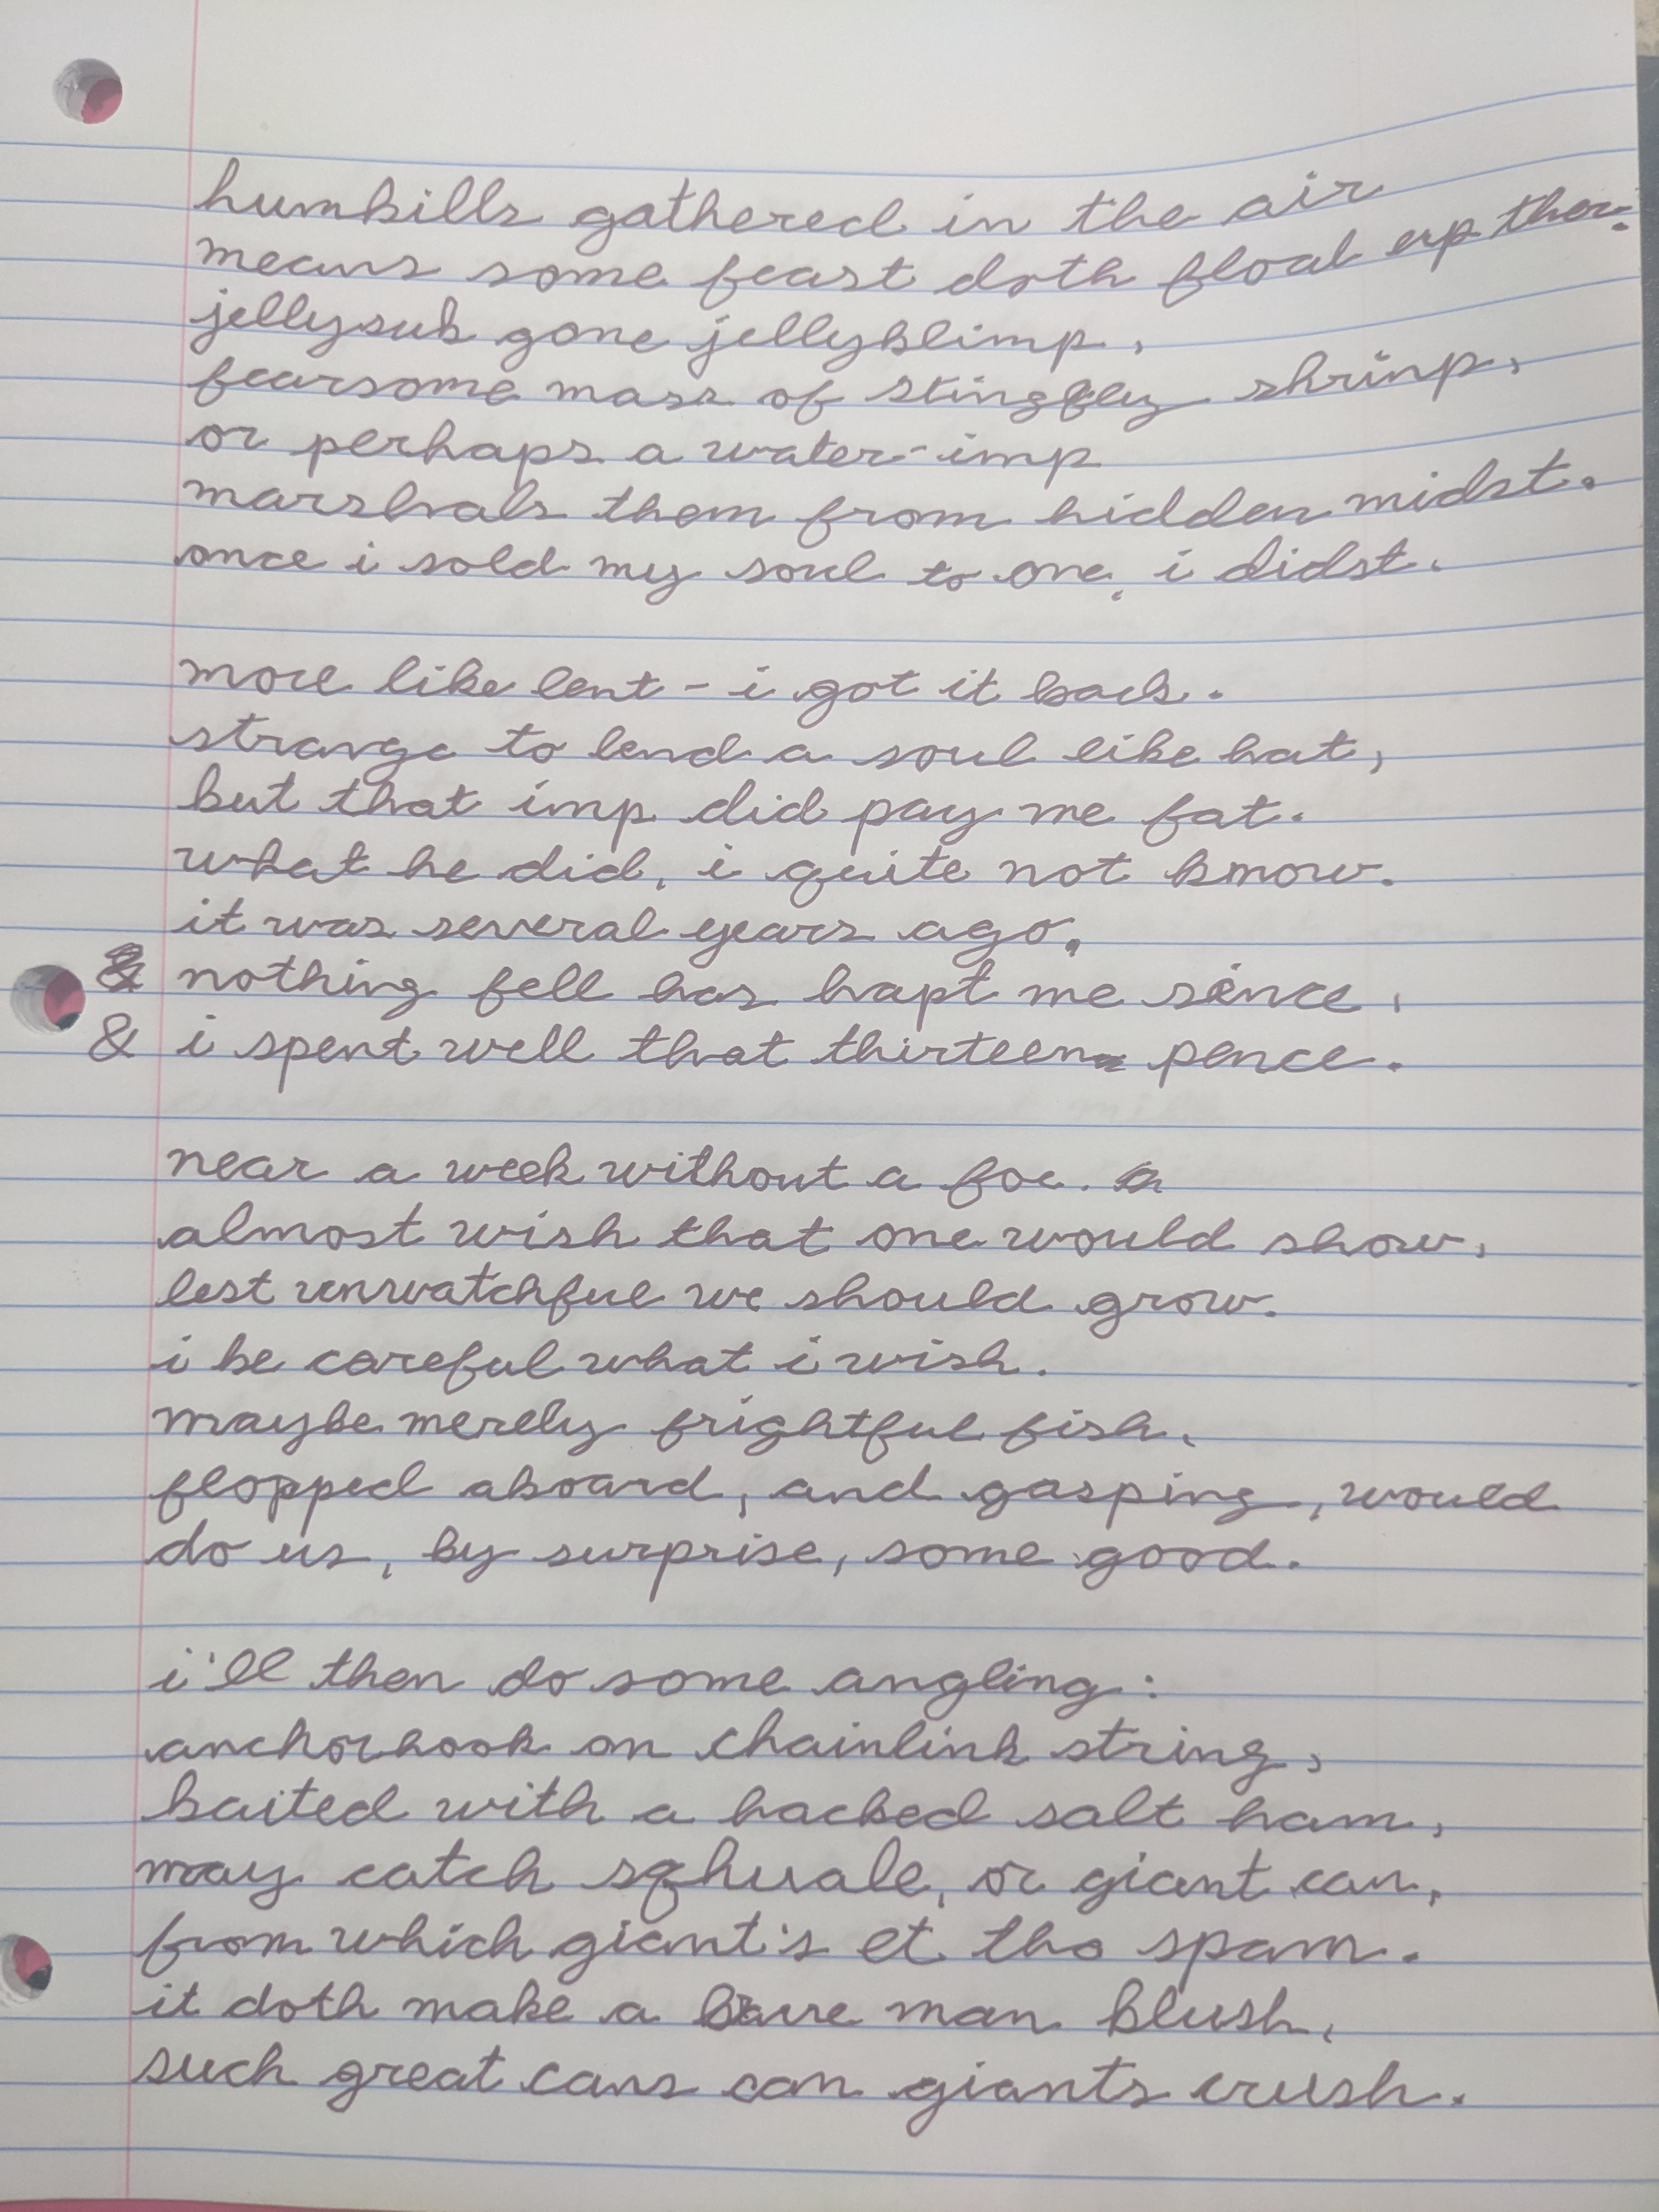 humbills gathered in the air
means some feast doth float up ther.
jellysub gone jellyblimp,
fearsome mass of stingfley shrimp,
or perhaps a water-imp
marshals them from hidden midst.
once i sold my soul to one, i didst.

more like lent - i got it back.
strange to lend a soul like hat,
but that imp did pay me fat.
what he did, i quite not know.
it was several years ago,
nothing fell has hapt me since,
& i spent well that thirteen pence.

near a week without a foe.
almost wish that one would show,
lest unwatchful we should grow.
i be careful what i wish.
maybe merely frightful fish,
flopped aboard, and gasping, would
do us, by surprise, some good.

i'll then do some angling:
anchorhook on chainlink string,
baited with a hacked salt ham,
may catch sqhuale, or giant can,
from which giant's et tho spam.
it doth make a brave man blush,
such great cans can giants crush.